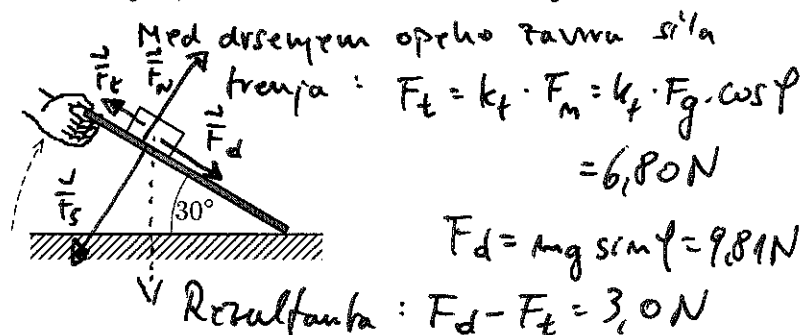 Med drsenjem opeko zavira sila
trenja : F_t = k_t · F_n = k_t · F_g · cos φ
= 6,80 N
F_d = mg sin φ = 9,81 N
Rezultanta : F_d - F_t = 3,0 N
F_t
F_N
F_d
F_s
30°